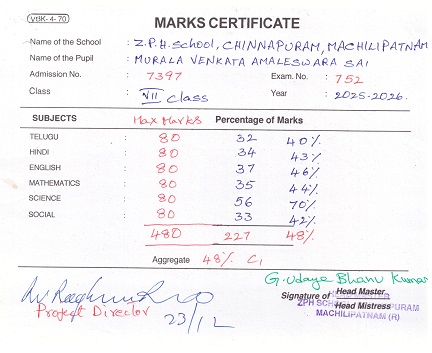 VBK-4-70
MARKS CERTIFICATE
Name of the School : Z.P.H.School, CHINNAPURAM, MACHILIPATNAM
Name of the Pupil : MURALA VENKATA AMALESWARA SAI
Admission No. : 7397 Exam. No. : 752
Class : VII Class Year : 2025-2026.
SUBJECTS Max Marks Percentage of Marks
TELUGU : 80 32 40%
HINDI : 80 34 43%
ENGLISH : 80 37 46%
MATHEMATICS : 80 35 44%
SCIENCE : 80 56 70%
SOCIAL : 80 33 42%
480 227 48%
Aggregate 48% C1
G. Udaya Bhanu Kumar
Signature of Head Master
Head Mistress
ZPH SCH PURAM
MACHILIPATNAM (R)
Project Director
23/12